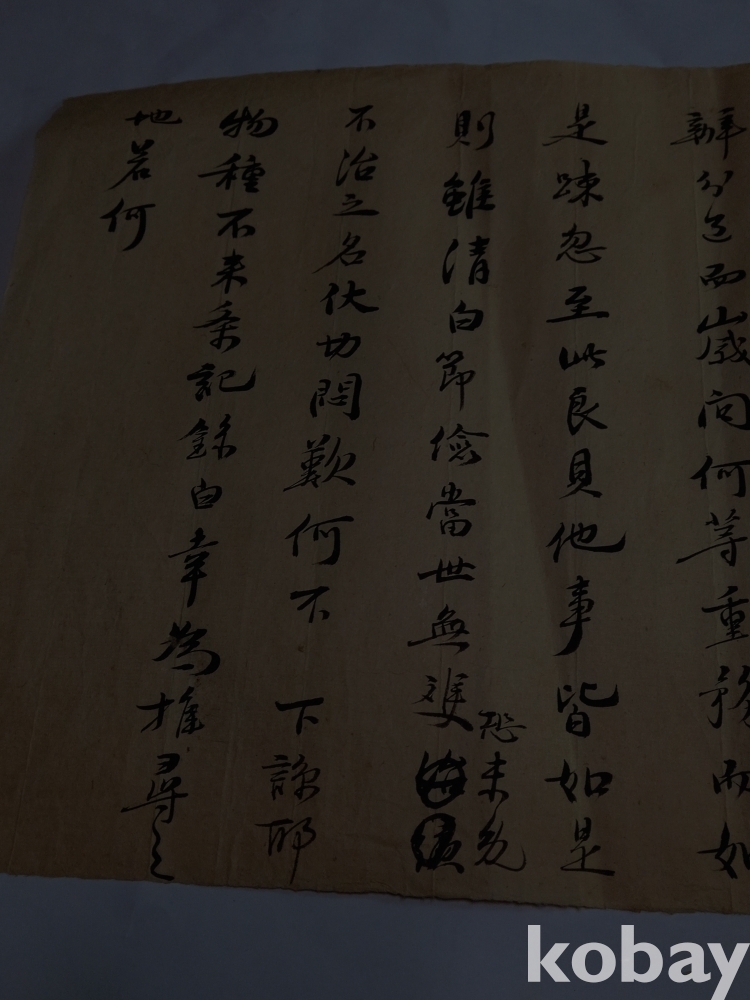 辦分之而山盛向何等重務而如
是踈忽至此良貝他事皆如是
則雖清白節儉當世無雙恐未免
不治之名伏切悶歎何不 下諒耶
物種不來条記錄白幸為推尋之
地若何
kobay